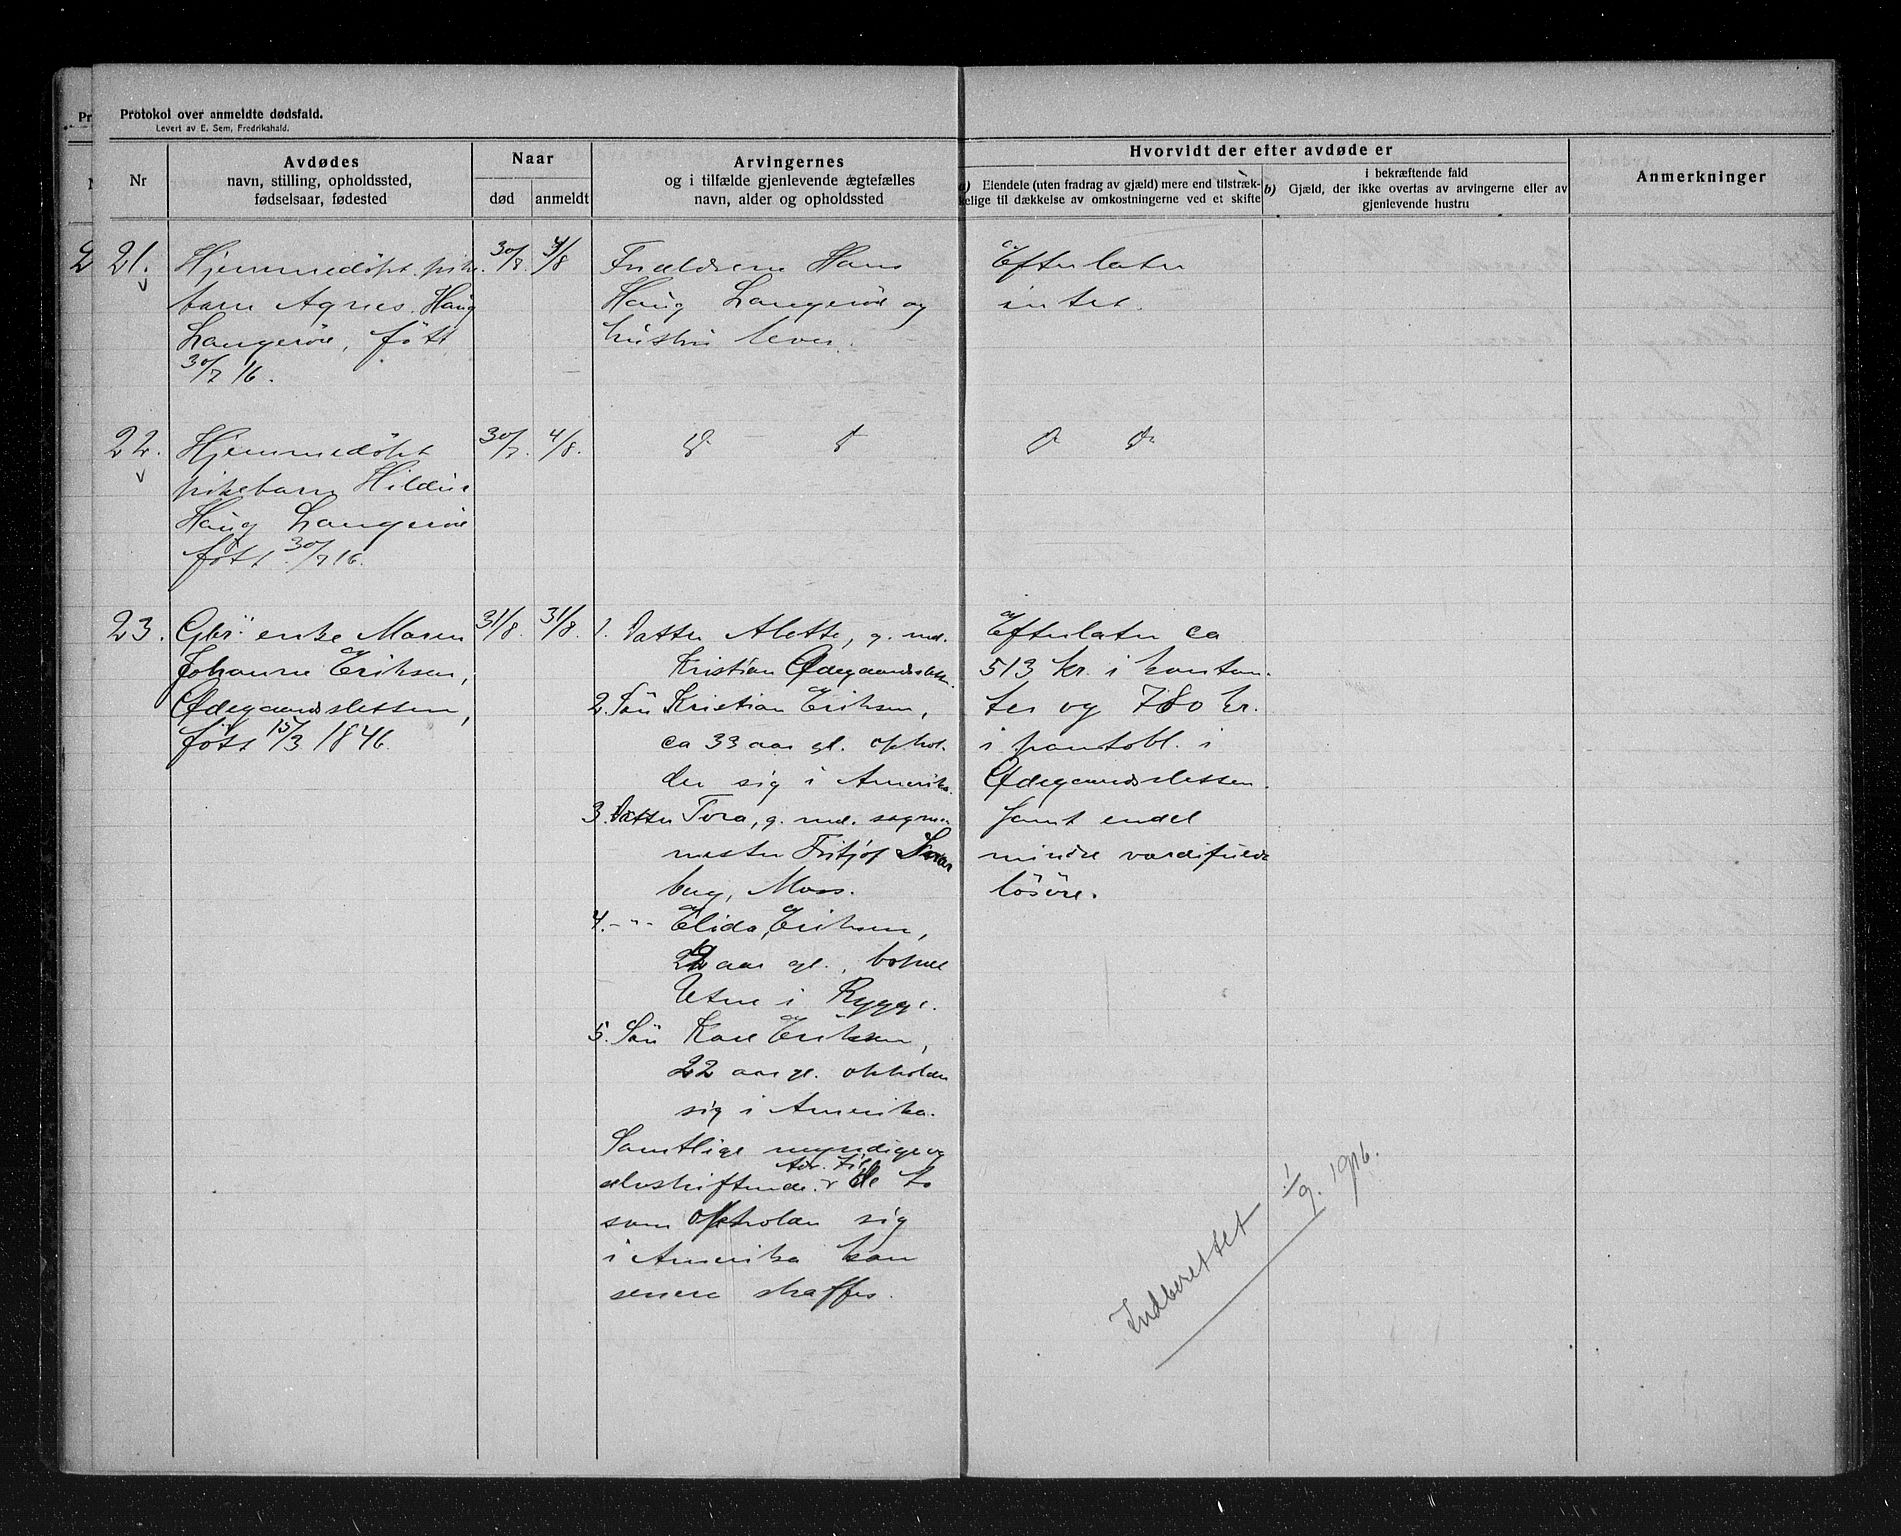 Protokol over anmeldte dødsfald.
Levert av E. Sem, Fredrikshald.
Nr
Avdødes
navn, stilling, opholdssted,
fødselsaar, fødested
Naar
død
anmeldt
Arvingernes
og i tilfælde gjenlevende ægtefælles
navn, alder og opholdssted
Hvorvidt der efter avdøde er
a) Eiendele (uten fradrag av gjæld) mere end tilstræk-
kelige til dækkelse av omkostningerne ved et skifte
i bekræftende fald
b) Gjæld, der ikke overtas av arvingerne eller av
gjenlevende hustru
Anmerkninger
21.
Hjemmedøpt pike-
barn Agnes Haug
Langeröe, føtt
30/7 16.
30/7. 4/8
Forældrene Hans
Haug Langeröe og
hustru lever.
Efterlater
intet.
22.
Hjemmedøpt
pikebarn
Haug Langeröe
føtt 30/7 16.
30/7. 4/8.
23.
Gbr. enke Maren
Johanne Eriksen,
Ødegaardsletten,
føtt 15/3 1846.
31/8. 31/8.
1. Datter Alette, g. m.
Kristian Ødegaardsletten.
2. Sön Kristian Eriksen,
ca 33 aar gl. ophol-
der sig i Amerika.
3. Datter Tora, g. med. sagm-
mester Fritjof
berg, Moss.
4. -"- Elida Eriksen,
aar gl., bopæl
i Rygge.
5. Sön Karl Eriksen,
22 aar gl. opholder
sig i Amerika.
Samtlige myndige og
selvskiftende. Adr. til de to
som opholder sig
i Amerika kan
senere skaffes.
Efterlater ca
513 kr. i kontan-
ter og 780 kr.
i pantobl. i
Ødegaardsletten.
Samt endel
mindre værdifuldt
lösöre.
Indberettet 1/9. 1916.